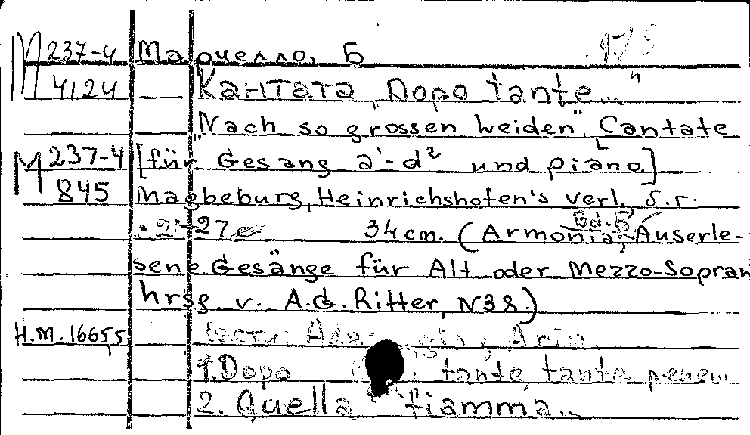 М 237-4 Марчелло, Б
4124 Кантата „Dopo tante..."
"Nach so grossen Leiden", Cantate
М 237-4 [für Gesang a'-d² und piano]
845 Magdeburg, Heinrichshofen's verl. s.r.
27 34 cm. (Armonia, Bd. Auserle-
sene Gesänge für Alt oder Mezzo-Sopran
hrsg v. A.G. Ritter, N38)
Н.М.16655 Aria
1. Dopo tante, tante pene...
2. Quella fiamma...